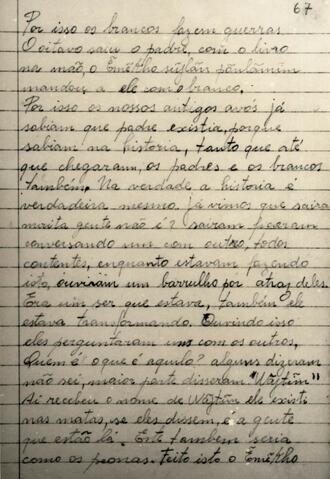 67
Por isso os brancos fazem guerras.
O oitavo saiu o padre, com o livro
na mão, o Ёmëkho sũlãn pãnlãmin
mandou a ele com o branco.
Por isso os nossos antigos avós já
sabiam que padre existia, porque
sabiam na historia, tanto que até
que chegaram, os padres e os brancos
também. Na verdade a historia é
verdadeira mesmo. já vimos que saira
muita gente não é? sairam ficaram
conversando um com outro, todos
contentes, enquanto estavam fazendo
isto, ouviram um barrulho por atraz deles.
Era um ser que estava, também ele
estava transformando. Ouvindo isso
eles perguntaram uns com os outros,
Quem é o que é aquilo? alguns diziam
não sei, maior parte disseram "Wãjtĩm"
Ai recebeu o nome de Wãjtĩm ele existe
nas matas, se eles dissem, é a gente
que estão lá. Este tambem seria
como os peonas. Feito isto o Ёmëkho